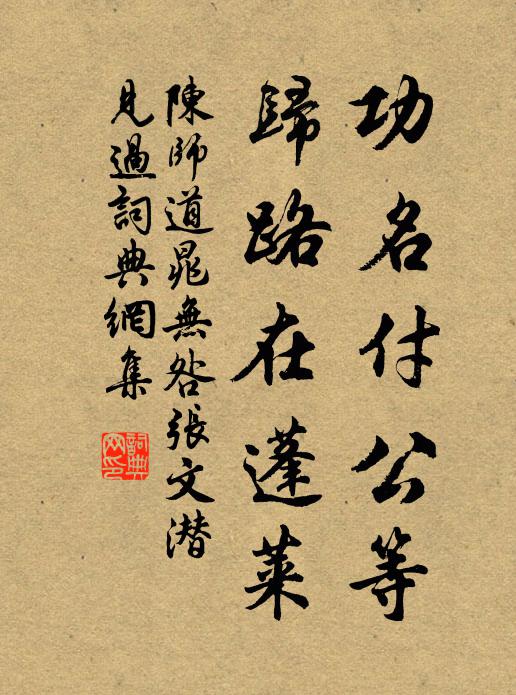 功名付公等
歸路在蓬萊
陳師道晁無咎張文潜
見過詞典網集
詞典网印